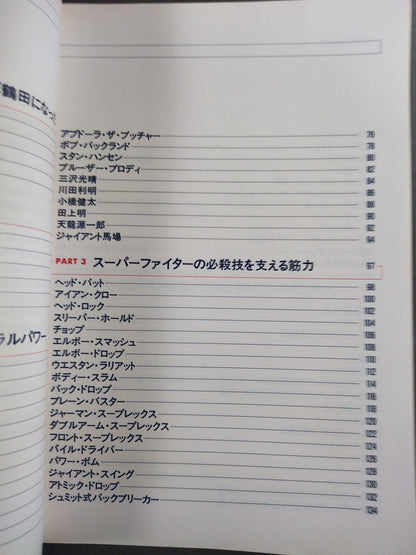 鶴田になっ
ラルパワー
アブドーラ・ザ・ブッチャー 76
ボブ・バックランド 78
スタン・ハンセン 80
ブルーザー・ブロディ 82
三沢光晴 84
川田利明 86
小橋健太 88
田上明 90
天龍源一郎 92
ジャイアント馬場 94
PART 3 スーパーファイターの必殺技を支える筋力 97
ヘッド・バット 98
アイアン・クロー 100
ヘッド・ロック 102
スリーパー・ホールド 104
チョップ 106
エルボー・スマッシュ 108
エルボー・ドロップ 110
ウエスタン・ラリアット 112
ボディー・スラム 114
バック・ドロップ 116
ブレーン・バスター 118
ジャーマン・スープレックス 120
ダブルアーム・スープレックス 122
フロント・スープレックス 124
パイル・ドライバー 126
パワー・ボム 128
ジャイアント・スイング 130
アトミック・ドロップ 132
シュミット式バックブリーカー 134